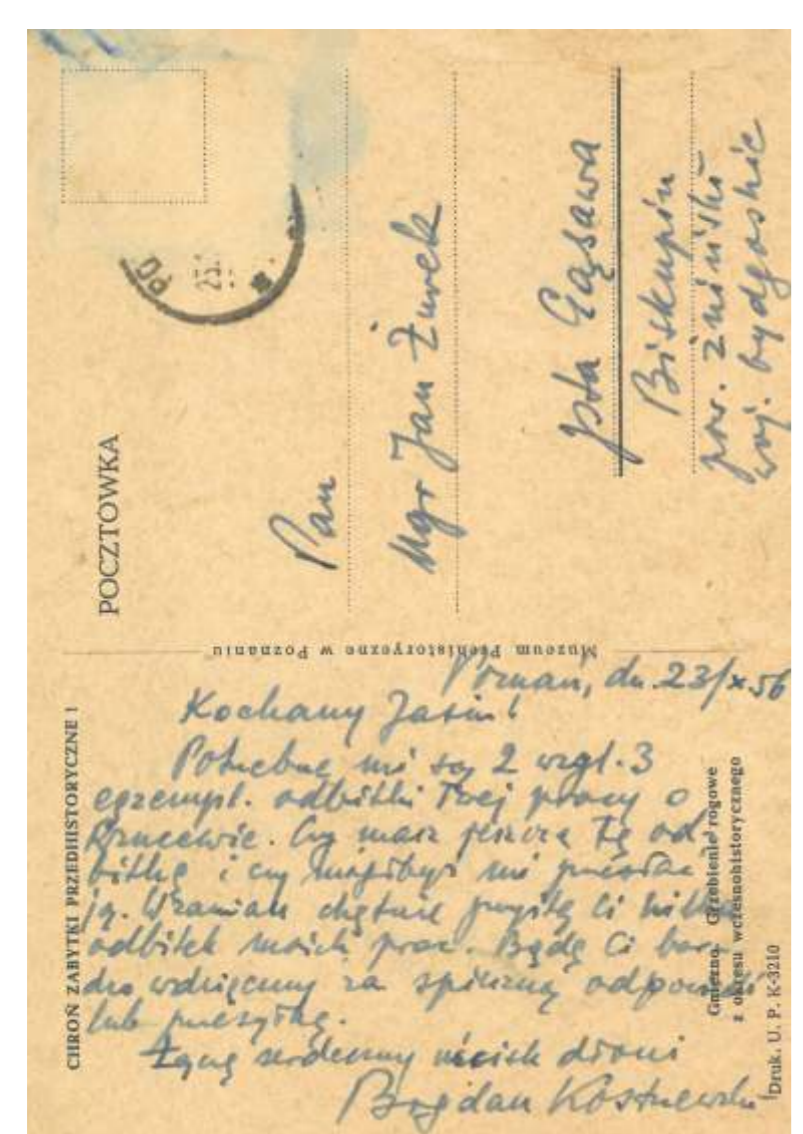 POCZTOWKA
Pan
Mgr Jan Żurek
pta Gąsawa
Biskupin
pow. żniński
woj. bydgoskie
PO
23.
Muzeum Prehistoryczne w Poznaniu
CHROŃ ZABYTKI PRZEDHISTORYCZNE !
Gniezno. Grzebienie rogowe
z okresu wczesnohistorycznego
Druk. U. P. K-3210
Poznań, dn. 23/X.56
Kochany Jasiu!
Potrzebne mi są 2 wzgl. 3
egzempl. odbitki Twej pracy o
Rzucewie. Czy masz jeszcze tę od
bitkę i czy mógłbyś mi przesłać
ją. Wzamian chętnie przyślę Ci kilka
odbitek moich prac. Będę Ci bar
dzo wdzięczny za spieszną odpowiedź
lub przesyłkę.
Łączę serdeczny uścisk dłoni
Bogdan Kostrzewski